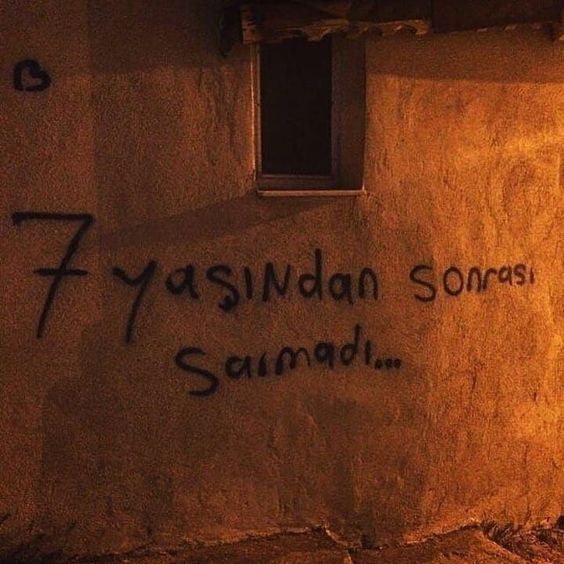 B
7 yaşından sonrası
sarmadı...